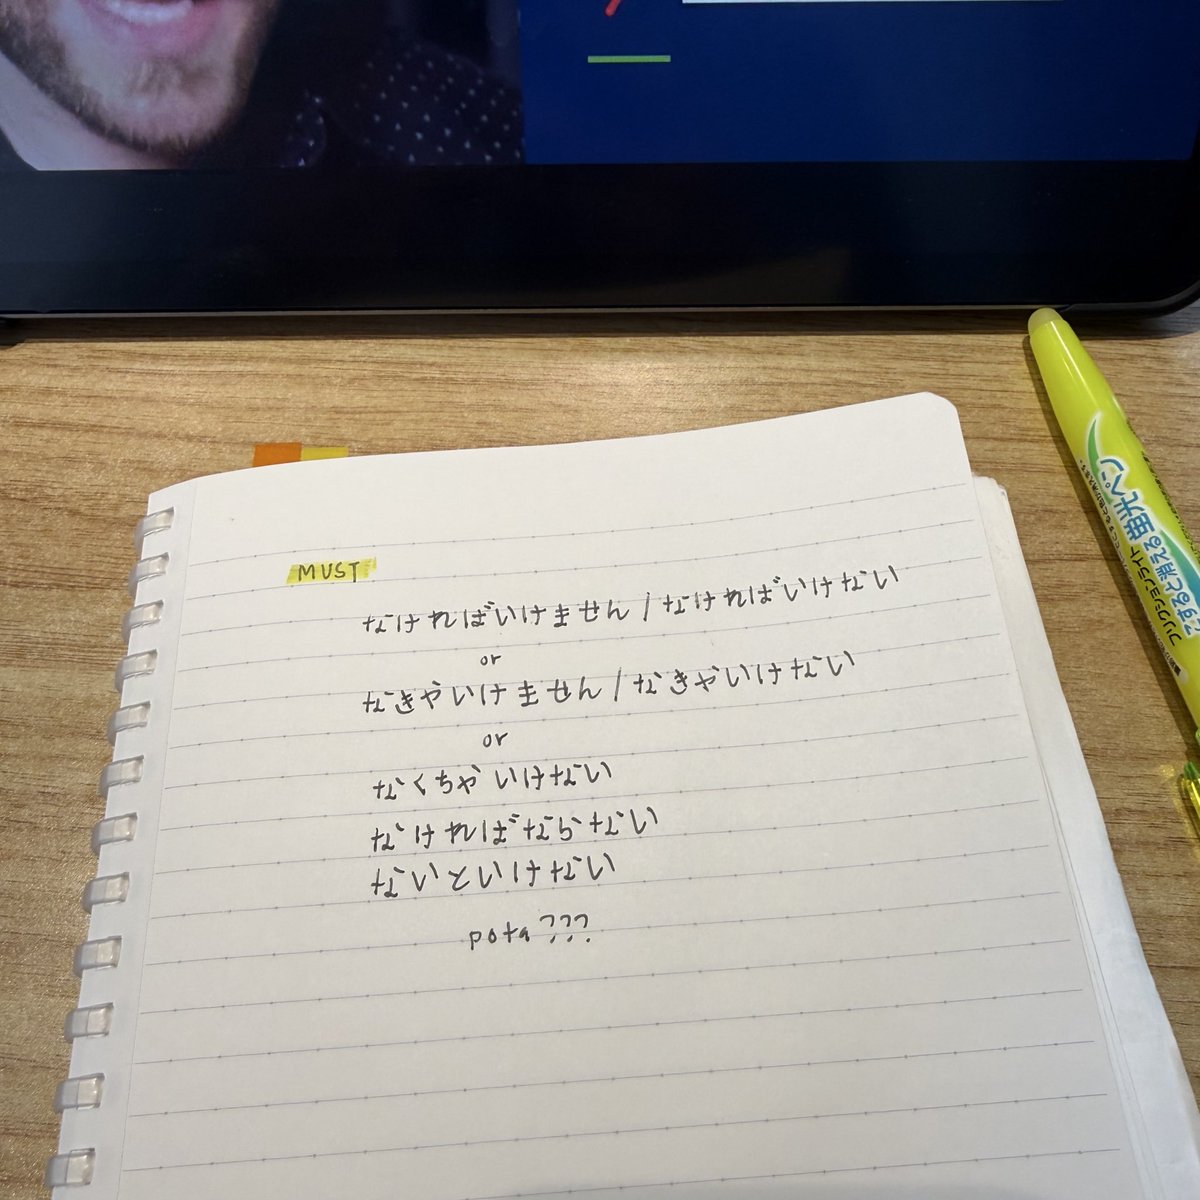 MUST
なければいけません / なければいけない
or
なきゃいけません / なきゃいけない
or
なくちゃいけない
なければならない
ないといけない
pota ???
フリクションライト
こすると消える蛍光ペン